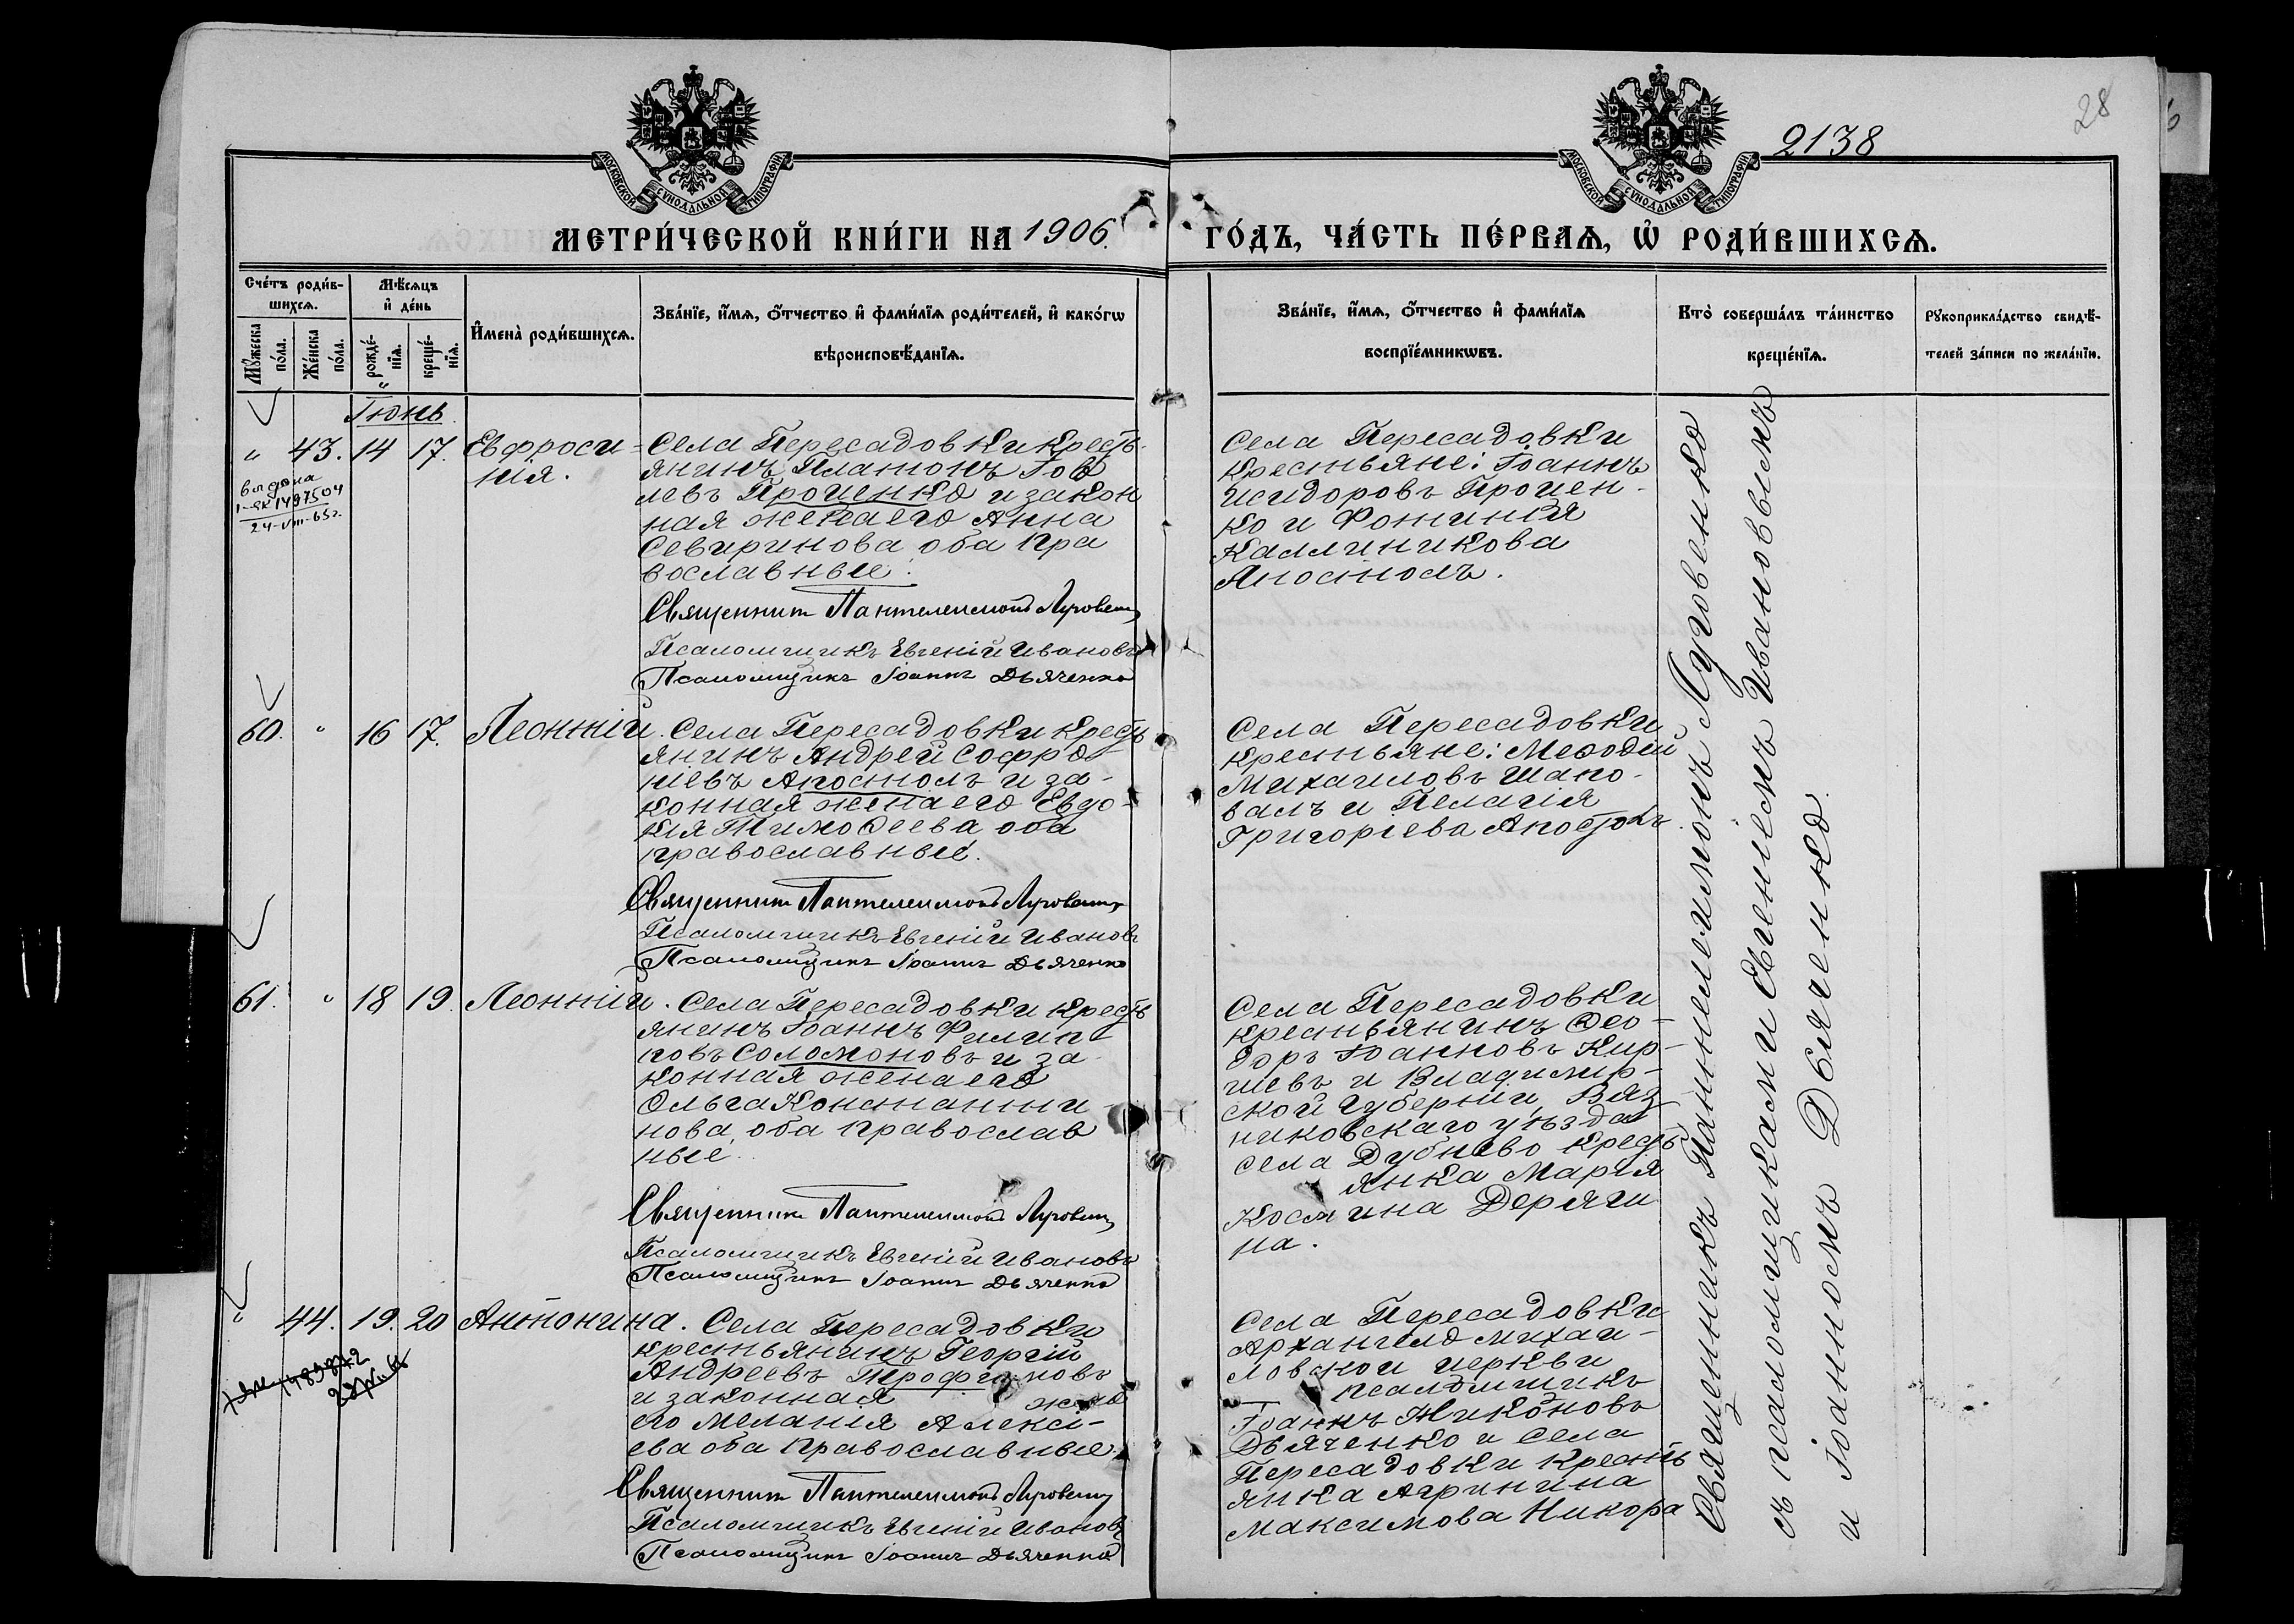 28
2138
МОСКОВСКОЙ СѴНОДАЛЬНОЙ ТИПОГРАФІИ
МОСКОВСКОЙ СѴНОДАЛЬНОЙ ТИПОГРАФІИ
МЕТРИ́ЧЕСКОЙ КНИ́ГИ НА 1906. ГО́ДЪ, ЧА́СТЬ ПЕ́РВАѦ, Ѡ҆ РОДИ́ВШИХСѦ.
Сче́тъ роди́в-
шихсѧ.
Мꙋ́жеска по́ла.
Же́нска по́ла.
Мѣ́сѧцъ
и҆ де́нь
рожде́-
нїѧ.
креще́-
нїѧ.
И҆мена̀ роди́вшихсѧ.
Зва́нїе, и҆́мѧ, ѻ҆́тчество и҆ фами́лїѧ роди́телей, и҆ како́гѡ
вѣроисповѣ́данїѧ.
Зва́нїе, и҆́мѧ, ѻ҆́тчество и҆ фами́лїѧ
воспрїе́мникѡвъ.
Кто̀ соверша́лъ та́инство
креще́нїѧ.
Рꙋкоприкла́дство свидѣ́-
телей за́писи по жела́нїю.
Іюнь
" 43. 14 17. Евфроси-
нія.
выдана
24-VIII-65г.
Села Пересадовки кресть
янинъ Платонъ Іов
левъ Проценко и закон
ная жена его Анна
Севиринова оба пра
вославные.
Священник Пантелеимонъ Луговенко
Псаломщикъ Евгеній Ивановъ
Псаломщикъ Іоаннъ Дьяченко
Села Пересадовки
крестьяне: Іоаннъ
Исидоровъ Процен-
ко и Фотинія
Каллиникова
Апостолъ.
60. " 16 17. Леонтій.
Села Пересадовки кресть
янинъ Андрей Софро-
ніевъ Апостолъ и за-
конная жена его Евдо-
кія Тимоѳеева оба
православные.
Священник Пантелеимонъ Луговенко
Псаломщикъ Евгеній Ивановъ
Псаломщикъ Іоаннъ Дьяченко
Села Пересадовки
крестьяне: Меѳодій
Михаиловъ Шапо-
валъ и Пелагія
Григоріева Апостолъ
61. " 18 19. Леонтій.
Села Пересадовки кресть
янинъ Іоаннъ Филип
повъ Соломоновъ и за-
конная жена его
Ольга Константи-
нова, оба православ
ные.
Священник Пантелеимонъ Луговенко
Псаломщикъ Евгеній Ивановъ
Псаломщикъ Іоаннъ Дьяченко
Села Пересадовки
крестьянинъ Ѳео-
доръ Іоанновъ Кир-
шевъ и Владимір-
ской губерніи, Вяз
никовскаго уѣзда
села Дубнево кресть
янка Марія
Космина Деряги
на.
" 44. 19. 20 Антонина.
Села Пересадовки
крестьянинъ Георгій
Андреевъ Трофимовъ
и законная жена
его Меланія Алексі-
ева оба православные
Священник Пантелеимонъ Луговенко
Псаломщикъ Евгеній Ивановъ
Псаломщикъ Іоаннъ Дьяченко
Села Пересадовки
Архангело Михаи-
ловской церкви
псаломщикъ
Іоаннъ Никоновъ
Дьяченко и села
Пересадовки кресть
янка Агрипина
Максимова Никора
Священникъ Пантелеимонъ Луговенко
съ псаломщиками Евгеніемъ Ивановымъ
и Іоанномъ Дьяченко.